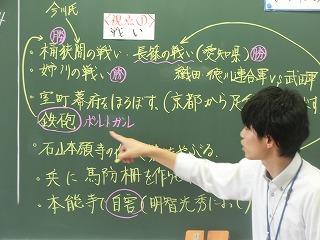 今川氏
〈視点①〉
戦い
勝
・桶狭間の戦い・長篠の戦い(愛知県)勝
・姉川の戦い勝 織田・徳川連合軍vs武田軍
・室町幕府をほろぼす。(京都から足
鉄砲 ポルトガル
・石山本願寺の
・共に馬防柵を作
・本能寺で自害(明智光秀